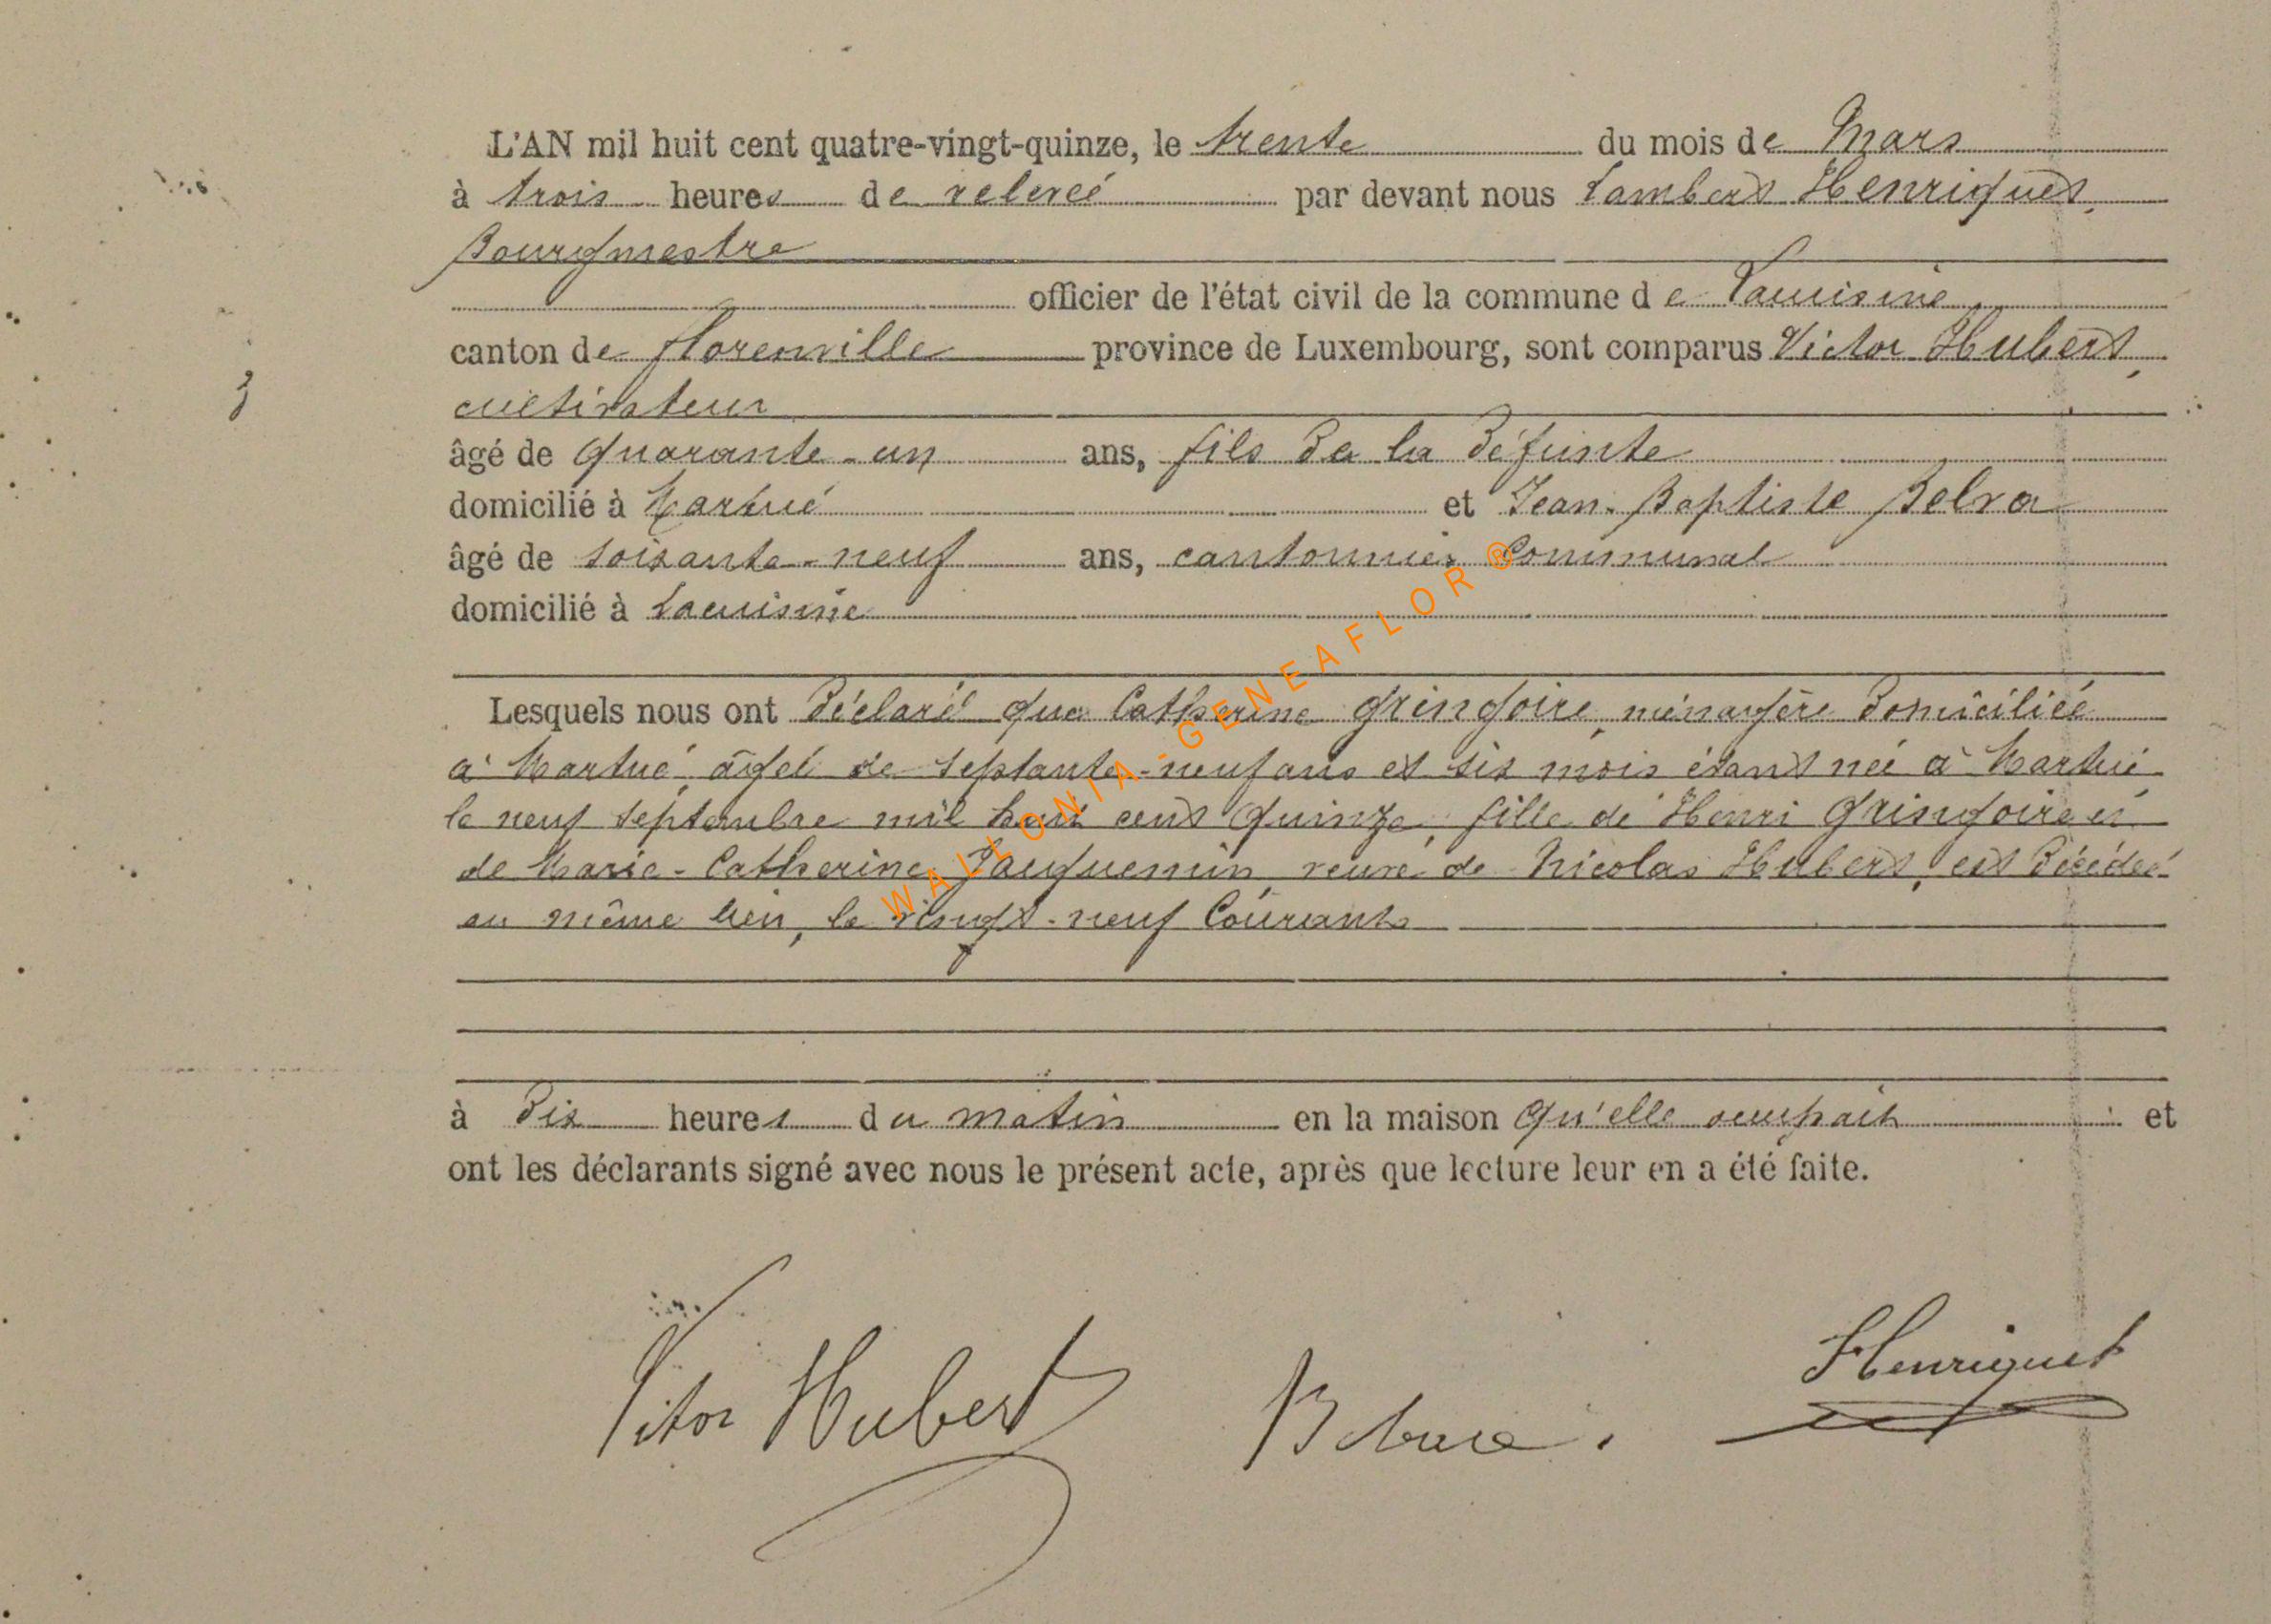 L'AN mil huit cent quatre-vingt-quinze, le trente du mois de Mars
à trois heures de relevée par devant nous Lambert Henriquet,
Bourgmestre
officier de l'état civil de la commune de Lacuisine,
canton de florenville province de Luxembourg, sont comparus Victor Hubert,
cultivateur
3
âgé de quarante-un ans, fils de la défunte
domicilié à Martué et Jean-Baptiste Belva
âgé de soixante-neuf ans, cantonnier Communal
domicilié à Lacuisine
Lesquels nous ont déclaré que Catherine Gringoire, ménagère domiciliée
à Martué, âgée de septante-neuf ans et six mois étant née à Martué
le neuf septembre mil huit cent quinze, fille de Henri Gringoire et
de Marie-Catherine Jacquemin, veuve de Nicolas Hubert, est décédée
au même lieu, le vingt-neuf Courant
à dix heures du matin en la maison qu'elle occupait et
ont les déclarants signé avec nous le présent acte, après que lecture leur en a été faite.
Vitor Hubert Henriquet
WALLONIA-GENEAFLOR®